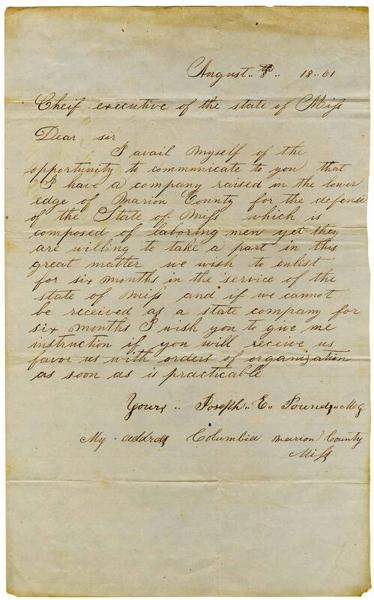 August 8th 18..61
Cheif executive of the state of Miss
Dear sir
I avail myself of the
opportunity to communicate to you that
I have a company raised in the lower
edge of Marion County for the defense
of the State of Miss which is
composed of laboring men yet they
are willing to take a part in this
great matter we wish to enlist
for six months in the service of the
state of Miss and if we cannot
be received as a state company for
six months I wish you to give me
instruction if you will receive us
favor us with orders of organization
as soon as is practicable
Yours .. Joseph .. E .. Pounds
My address Columbia Marion County
Miss